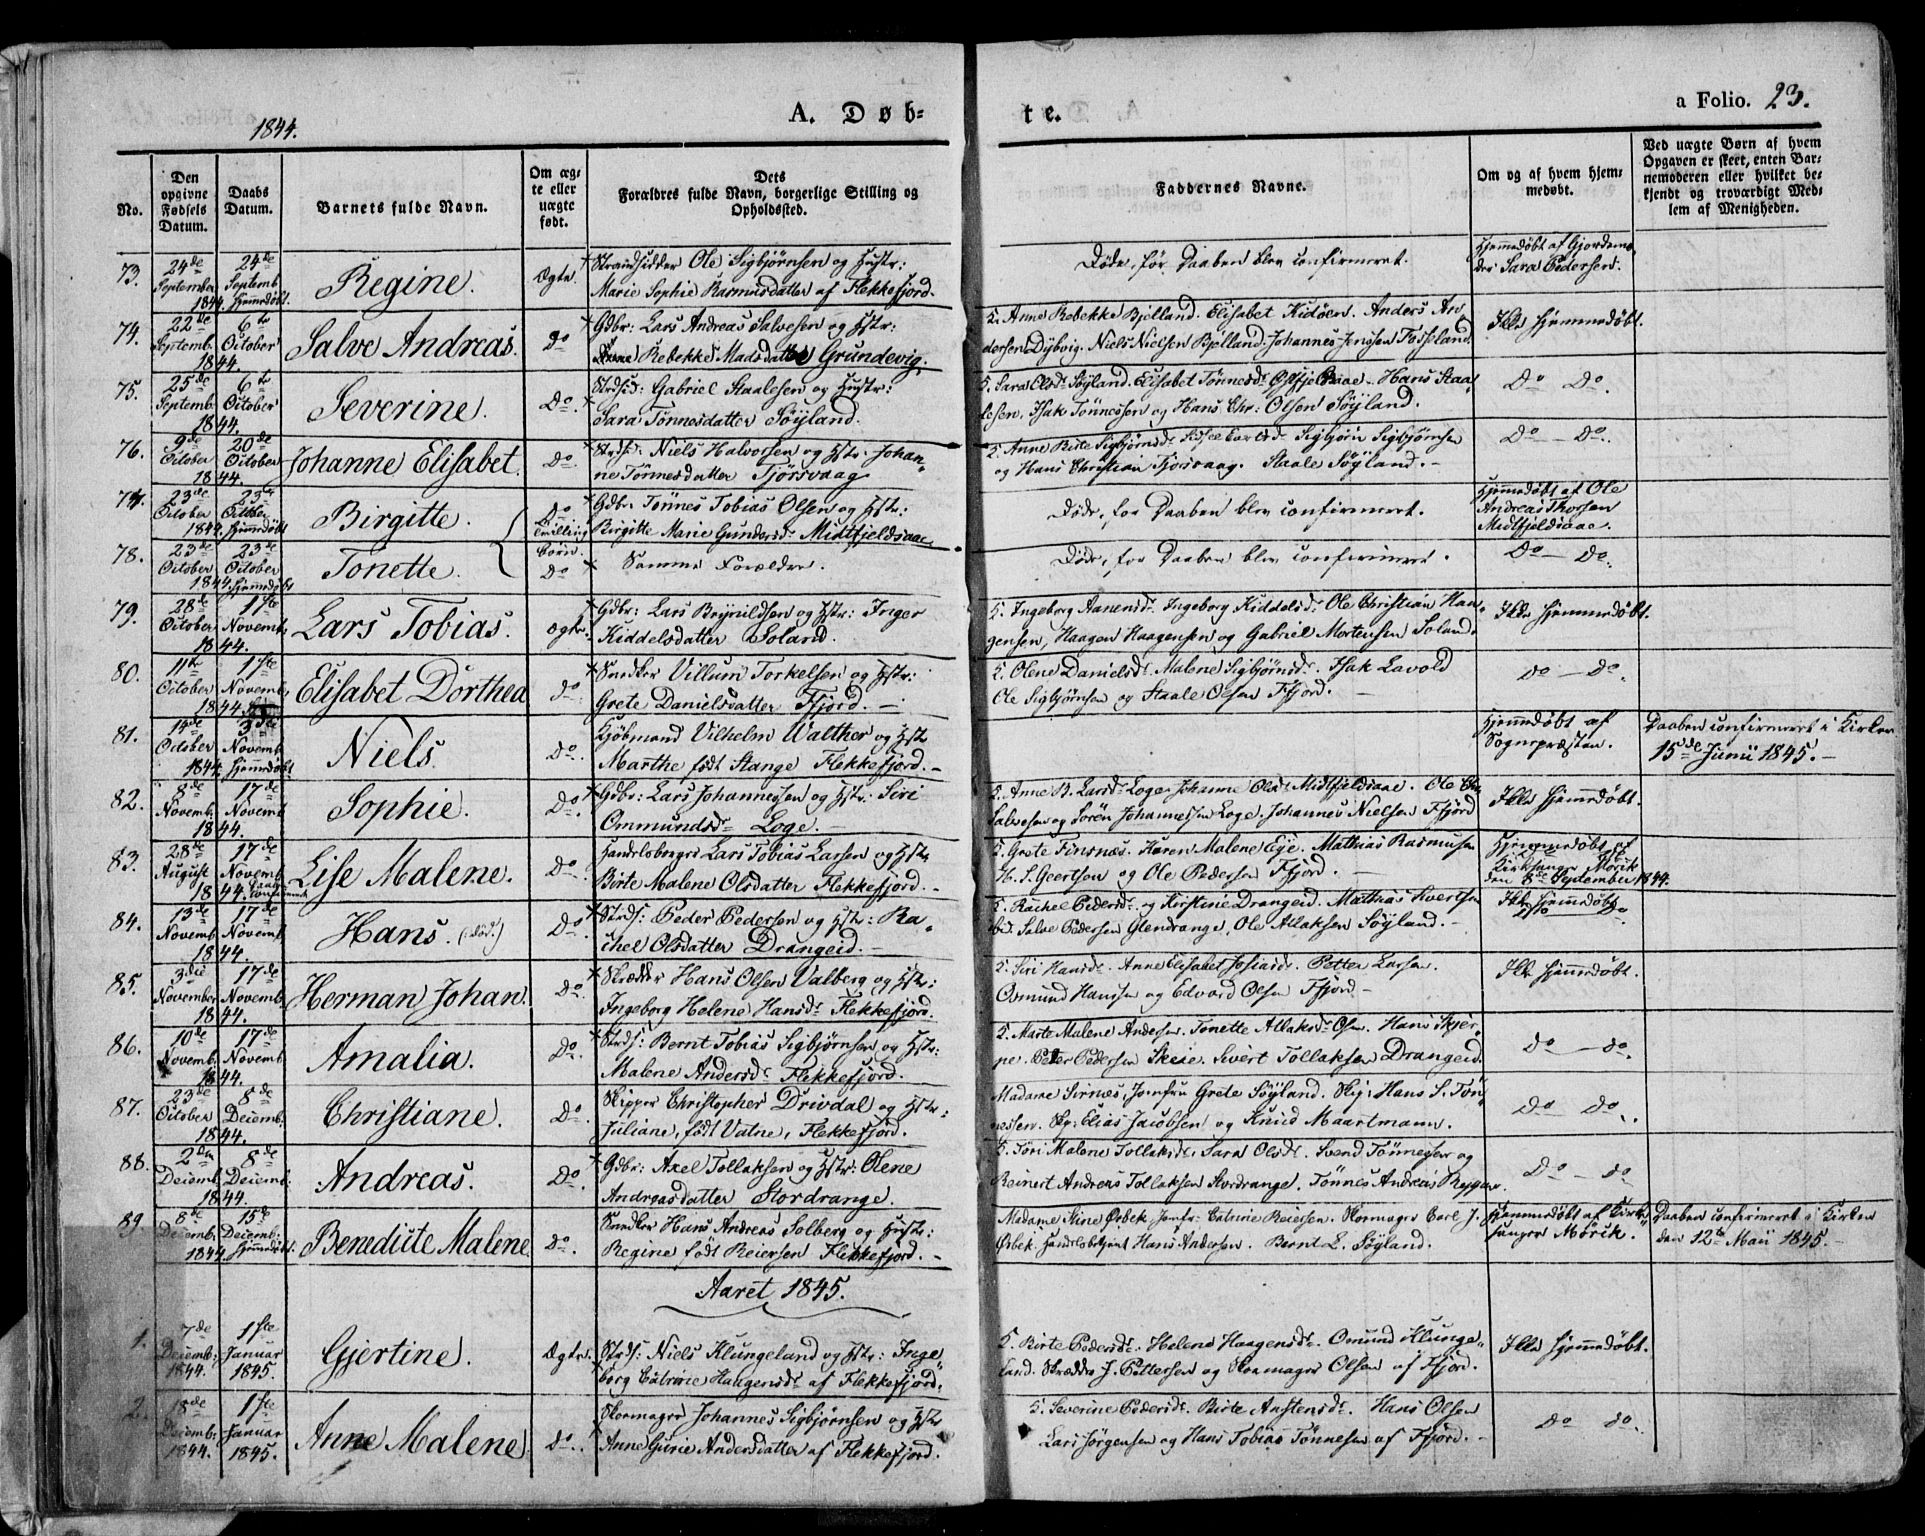 1844.
A. Døb-
te.
a Folio. 23.
No.
Den opgivne Fødsels Datum.
Daabs Datum.
Barnets fulde Navn.
Om æg-
te eller
uægte
født.
Dets
Forældres fulde Navn, borgerlige Stilling og
Opholdssted.
Faddernes Navne.
Om og af hvem hjem-
medøbt.
Ved uægte Børn af hvem
Opgaven er skeet, enten Bar-
nemoderen eller hvilket be-
kjendt og troværdigt Med-
lem af Menigheden.
73. 24de September 1844. 24de Septemb. Hjemmedøbt. Regine. Ægte. Strandsidder Ole Sigbjørnsen og Hustr:
Marie Sophie Rasmusdatter af Flekkefjord.
Døde, før Daaben blev confirmeret.
Hjemmedøbt af Gjordemo-
der Sara Pedersen.
74. 22de Septemb. 1844. 6te October Salve Andreas. Do Gdbr: Lars Andreas Salvesen og Hstr:
Rebekke Madsdatter Grundevig.
5. Anne Rebekke Bjelland. Elisabet Kidøen. Anders An-
dersen Dybvig. Niels Nielsen Bjelland. Johannes Jenssen Fosseland.
Ikke hjemmedøbt.
75. 25de Septemb. 1844. 6te October Severine. Do. Strdsid: Gabriel Staalesen og Hustr:
Sara Tønnesdatter Søyland.
5. Sara Olsdr Søyland. Elisabet Tønnesdr Hans Staa-
lesen, Isak Tønnessen og Hans Chr: Olsen Søyland.
Do Do.
76. 9de October 1844. 20de October Johanne Elisabet. Do. Strds: Niels Halvorsen og Hstr: Johan-
ne Tønnesdatter Tjørsvaag
5. Anne Birte Sigbjørnsdr Sigbjørn Sigbjørnsen
og Hans Christian Tjorsvaag. Staale Søyland.
Do Do.
77. 23de October 1844. 23de Octbr Hjemmedøbt Birgitte. Do Tvilling Børn. Gdbr: Tønnes Tobias Olsen og Hstr:
Birgitte Marie Gundersdr Midtfjeldsaae
Døde, før Daaben blev confirmeret.
Hjemmedøbt af Ole
Andreas Thorsen
Midtfjeldsaae.
78. 23de October 1844. 23de October Hjemmedøbt Tonette. Do Samme Forældre.
Døde, før Daaben blev confirmeret.
Do Do.
79. 28de October 1844. 1ste Novemb. Lars Tobias. ægte. Gdbr: Lars Brynildsen og Hstr: Inger
Kiddelsdatter Soland.
5. Ingeborg Aanensdr. Ingeborg Kiddelsdr. Ole Christian Haa-
gensen, Haagen Haagensen og Gabriel Mortensen Soland.
Ikke hjemmedøbt.
80. 11te October 1844. 1ste Novemb. Elisabet Dorthea Do. Snedker Villum Torkelsen og Hstr:
Grete Danielsdatter Ffjord.
5. Olene Danielsdr. Malene Sigbjørnsdr. Isak Lavold
Ole Sigbjørnsen og Staale Olsen Ffjord.
Do Do.
81. 14de October 1844. 3die Novemb. Hjemmedøbt Niels. Do. Kjøbmand Vilhelm Walther og Hstr
Marthe født Stange Flekkefjord.
Hjemmedøbt af
Sognepræsten.
Daaben confirmeret i Kirken
15de Junii 1845.
82. 8de Novemb. 1844. 17de Novemb Sophie. Do. Gdbr: Lars Johannessen og Hstr. Siri
Ommundsdr Loge.
5. Anne B. Larsdr Loge. Johanne Olsdr Midtfjeldsaae. Ole Chr.
Salvesen og Søren Johannessen Loge. Johannes Nielsen Ffjord
Ikke hjemmedøbt.
83. 28de August 1844. 17de Novemb. Daaben confirmeret Lise Malene. Do. Handelsborger Lars Tobias Larsen og Hstr
Birte Malene Olsdatter Flekkefjord.
5. Grete Finsnæs. Karen Malene Eje. Mathias Rasmusen
H. S. Geertsen og Ole Pedersen Ffjord.
Hjemmedøbt af
Kirksanger Mörik
den 8de September 1844.
84. 13de Novemb. 1844. 17de Novemb. Hans. (død.) Do. Strds: Peder Pedersen og Hstr: Ra-
chel Olsdatter Drangeid.
5. Rachel Pedersdr og Kirstine Drangeid. Mathias Sivertsen
Salve Pedersen Glendrange, Ole Allaksen Søyland.
Ikke hjemmedøbt
85. 3die November 1844. 17de Novemb. Herman Johan. Do. Skrædder Hans Olsen Valberg og Hstr:
Ingeborg Helene Hansdr Flekkefjord.
5. Siri Hansdr. Anne Elisabet Josiasdr. Petter Larsen.
Osmund Hansen og Edvard Olsen Ffjord
Ikke hjemmedøbt.
86. 10de Novemb. 1844. 17de Novemb. Amalia. Do. Strds: Bernt Tobias Sigbjørnsen og Hstr:
Malene Andersdr. Flekkefjord.
5. Marte Malene Andersen. Tonette Allaksdr Olsen. Hans Skjer-
pe. Peter Pedersen Skeie. Sivert Tollaksen Drangeid.
Do Do.
87. 23de October 1844. 8de Decemb. Christiane. Do. Skipper Christopher Drivdal og Hstr:
Juliane, født Vatne, Flekkefjord.
Madame Sirnæs, Jomfru Grete Søyland. Skip: Hans S. Tøn-
nessen. Skp: Elias Jacobsen og Knud Maartmann.
Do Do.
88. 2den Decemb. 1844. 8de Decemb. Andreas. Do. Gdbr: Axel Tollaksen og Hstr: Olene
Andreasdatter Stordrange.
5. Tøri Malene Tollaksdr. Sara Olsdr. Svend Tønnessen og
Reinert Andreas Tollaksen Stordrange. Tønnes Andreas
Do Do.
89. 8de Decemb. 1844. 15de Decemb: Hjemmedøbt. Benedicte Malene Do. Snedker Hans Andreas Solberg og Hustr:
Regine født Reiersen Flekkefjord.
Madame Stine Ørbek. Jomfr: Catrine Reiersen. Skomager Carl J.
Ørbek. Handelsbetjent Hans Andersen. Bernt L. Søyland.
Hjemmedøbt af Kirk-
sanger Mörik.
Daaben confirmeret i Kirken
den 12te Maii 1845.
Aaret 1845.
1. 7de Decemb. 1844. 1ste Januar 1845. Gjertine. Ægte. Strds: Niels Klungeland og Hstr: Inge-
borg Catrine Haagensdr af Flekkefjord.
5. Birte Pedersdr. Helene Haagensdr. Osmund Klunge-
land. Skrædder J. Pettersen og Skomager Olsen af Ffjord.
Ikke hjemmedøbt.
2. 18de Decemb. 1844. 1ste Januar 1845. Anne Malene. Do. Skomager Johannes Sigbjørnsen og Hstr
Anne Gurie Andersdatter af Flekkefjord.
5. Severine Pedersdr. Birte Austensdr. Hans Olsen
Lars Jørgensen og Hans Tobias Tønnesen af Ffjord.
Do Do.